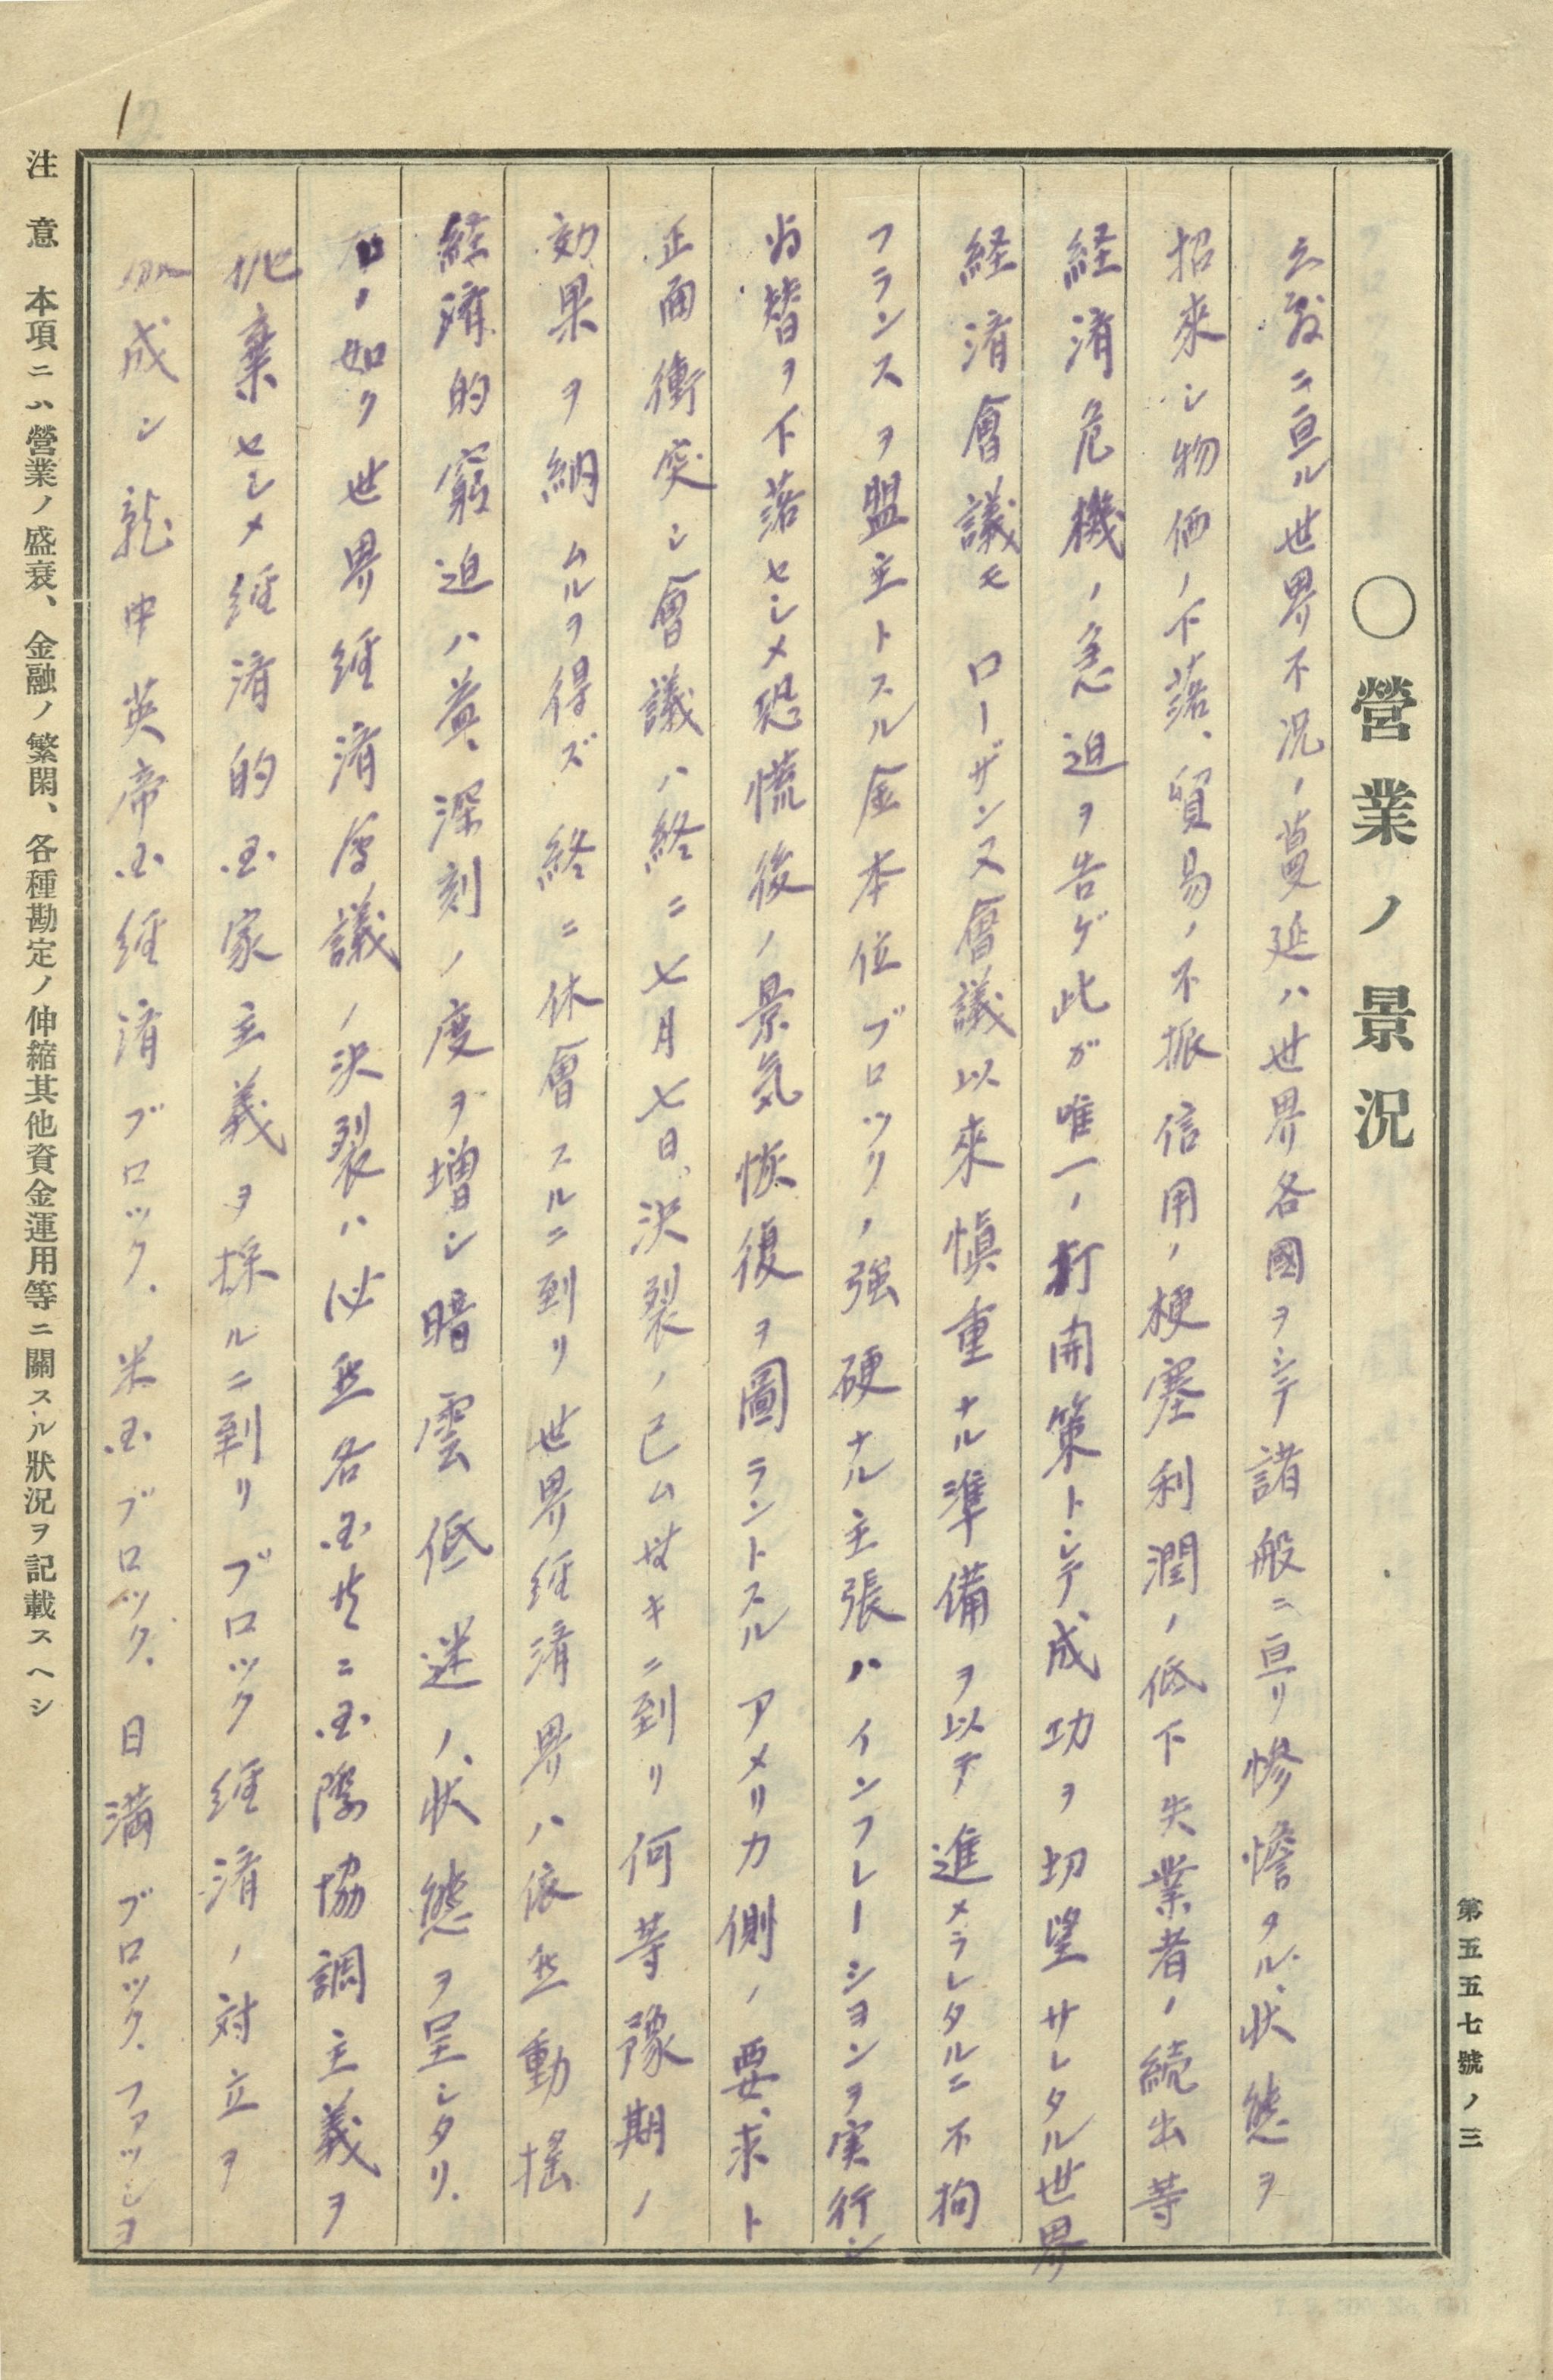 第五五七號ノ三
○營業ノ景況
ニ亘ル世界不況ノ蔓延ハ世界各國ヲシテ諸般ニ亘リ惨憺タル状態ヲ
招来シ物価ノ下落、貿易ノ不振信用ノ梗塞利潤ノ低下失業者ノ続出等
経済危機ノ急迫ヲ告ゲ此が唯一ノ打開策トシテ成功ヲ切望サレタル世界
経済會議モローザンヌ會議以来慎重ナル準備ヲ以テ進メラレタルニ不拘
フランスヲ盟主トスル金本位ブロックノ強硬ナル主張ハインフレーションヲ実行シ
為替ヲ下落セシメ恐慌後ノ景気恢復ヲ圖ラントスルアメリカ側ノ要求ト
正面衝突シ會議ハ終ニ七月七日、決裂ノ已ム無キニ到リ何等豫期ノ
効果ヲ納ムルヲ得ズ終ニ休會スルニ到リ世界経済界ハ依然動揺
経済的窮迫ハ益、深刻ノ度ヲ増シ暗雲低迷ノ状態ヲ呈シタリ.
ノ如ク世界経済会議ノ決裂ハ必然各国共ニ国際協調主義ヲ
抛棄セシメ経済的国家主義ヲ採ルニ到リブロック経済ノ対立ヲ
成シ就中英帝国経済ブロック.米国ブロック.日満ブロック.ファッショ
注意 本項ニハ營業ノ盛衰、金融ノ繁閑、各種勘定ノ伸縮其他資金運用等ニ關スル狀況ヲ記載スヘシ